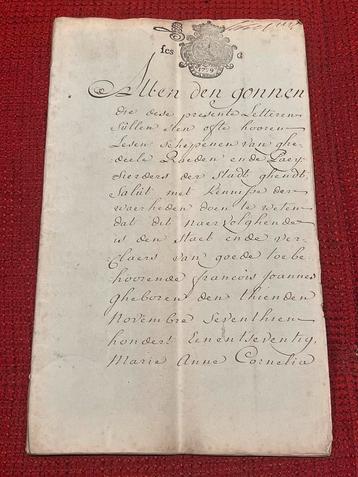 fcs
Allen den gonnen
die dese presente Letteren
Sullen sien ofte hooren
Lesen schepenen van ghe-
deele Raeden ende Paey-
sierders der Stadt ghendt,
Salut met kennisse der
waerheden doen te weten
dat dit naervolghende
is den Staet ende ver-
Claers van goede toebe
hoorende francois Joannes
gheboren den thienden
Novembre Seventhien
hondert Eenentseventig,
Marie Anne Cornelia